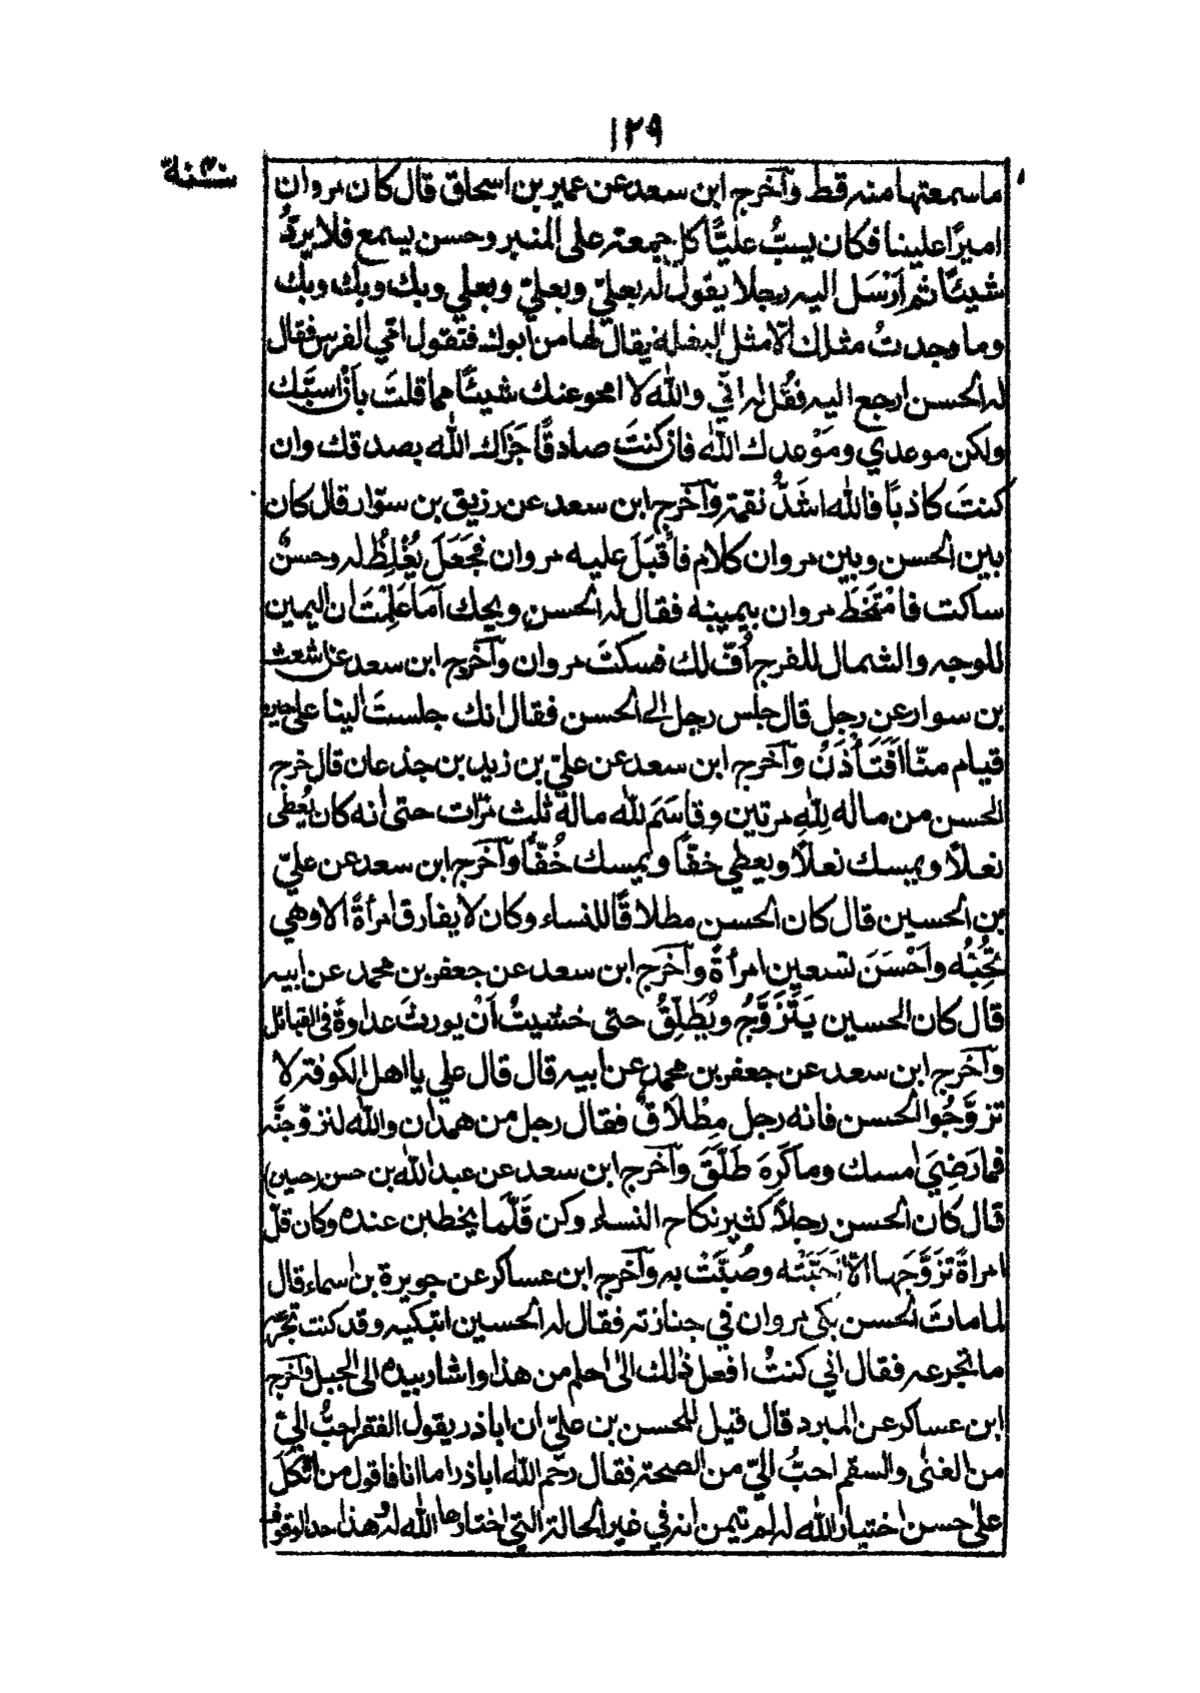 ١٢٩
سنة
ما سمعتها منه قط وآخرج ابن سعد عن عمير بن اسحاق قال كان مروان
اميرًا علينا فكان يسبُّ عليًّا كل جمعة على المنبر وحسن يسمع فلا يردُّ
شيئًا ثم اَرْسَل اليه رجلا يقول له بعليّ وبعليّ وبعلي وبك وبك وبك
وما وجدتُ مثلك الّا مثل البغلة يقال لها من أبوك فتقول امّي الفرس فقال
له الحسن ارجع اليه فقُل له انّي والله لا امحو عنك شيئًا مما قلتَ بأن اسبّك
ولكن موعدي ومَوْعدك الله فان كنتَ صادقًا جَزَاك الله بصدقك وان
كنتَ كاذبًا فالله اشَدُّ نقمة وآخرج ابن سعد عن رزيق بن سوّار قال كان
بين الحسن وبين مروان كلام فاَقْبَلَ عليه مروان فجَعَلَ يُغْلِظُ له وحسنٌ
ساكت فامْتَخَطَ مروان بيمينه فقال له الحسن ويحك اَمَا عَلِمْتَ ان اليمين
للوجه والشمال للفرج اُفّ لك فسكتَ مروان وآخرج ابن سعد عن اشعث
بن سوار عن رجل قال جلس رجل الى الحسن فقال انك جلستَ الينا على حين
قيام منّا اَفَتَأْذَنُ وآخرج ابن سعد عن عليّ بن زيد بن جذعان قال خرج
الحسن من ماله لِلّٰهِ مرتين وقاسَمَ لله ماله ثلث مرّات حتى انه كان يُعْطى
نعلًا ويمسك نعلًا ويعطي خفّاً ويمسك خُفّاً وآخرج ابن سعد عن عليّ
بن الحسين قال كان الحسن مطلاقًا للنساء وكان لا يفارق امرأةً الا وهي
تُحِبُّه واَحْسَنَ تسعين امرأةً وآخرج ابن سعد عن جعفر بن محمد عن ابيه
قال كان الحسين يَتَزَوَّجُ ويُطَلِّقُ حتى خشيتُ اَنْ يورث عداوةً فى القبائل
وآخرج ابن سعد عن جعفر بن محمد عن ابيه قال قال علي يا اهل الكوفة لا
تزوّجُوا الحسن فانه رجل مِطْلَاقٌ فقال رجل من همدان والله لنزوّجنّه
فما رَضِيَ امسك وما كَرِهَ طَلَّقَ وآخرج ابن سعد عن عبد الله بن حسن (حسين)
قال كان الحسن رجلًا كثير نكاح النساء وكن قَلّمَا يخطين عنده وكان قلّ
امراةً تزَوَّجَها الّا اَحَبَّتْه وصُبَّتْ به وآخرج ابن عساكر عن جويرة بن اسماء قال
لما ماتَ الحسن بكى مروان في جنازته فقال له الحسين اتبكيه وقد كنت تجرّعه
ما تجرعه فقال اني كنتُ افعل ذٰلك الىٰ احلم من هذا واشار بيده الى الجبل وآخرج
ابن عساكر عن المبرد قال قيل للحسن بن عليّ ان اباذر يقول الفقر احبُّ اليّ
من الغنٰى والسقم احبُّ اليّ من الصحة فقال رحم الله اباذر اما انا فاقول من اتّكَلَ
علىٰ حسن اختيار الله له لم يتمن انه في غير الحالة التي اختارها الله له وهذا حد الوقوف